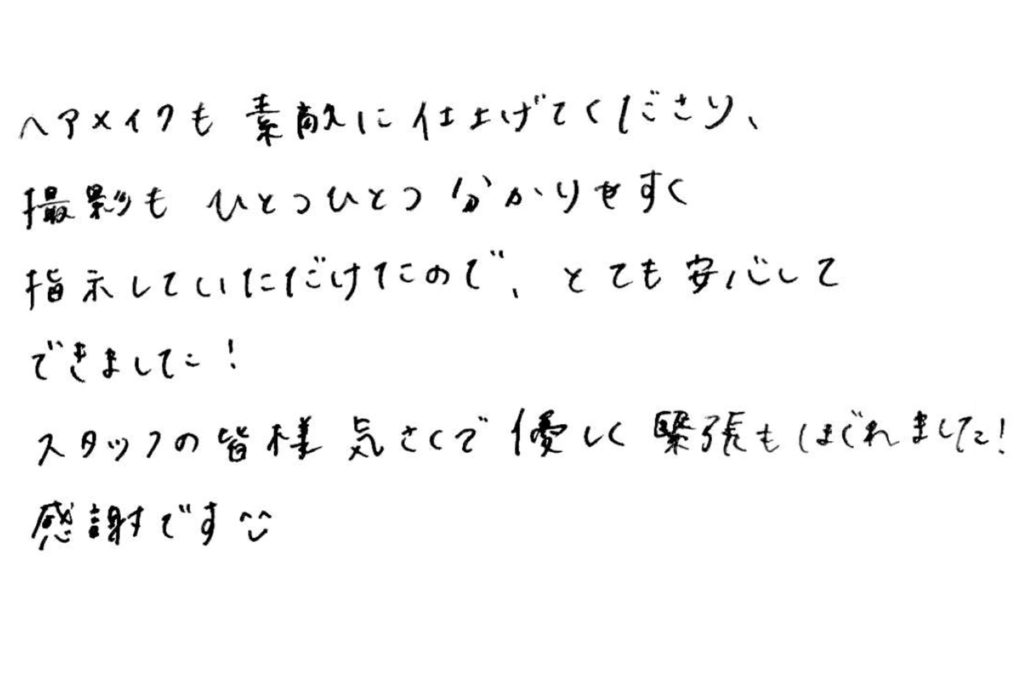 ヘアメイクも素敵に仕上げてくださり、
撮影も ひとつひとつ 分かりやすく
指示していただけたので、とても安心して
できました!
スタッフの皆様 気さくで 優しく 緊張もほぐれました!
感謝です^^